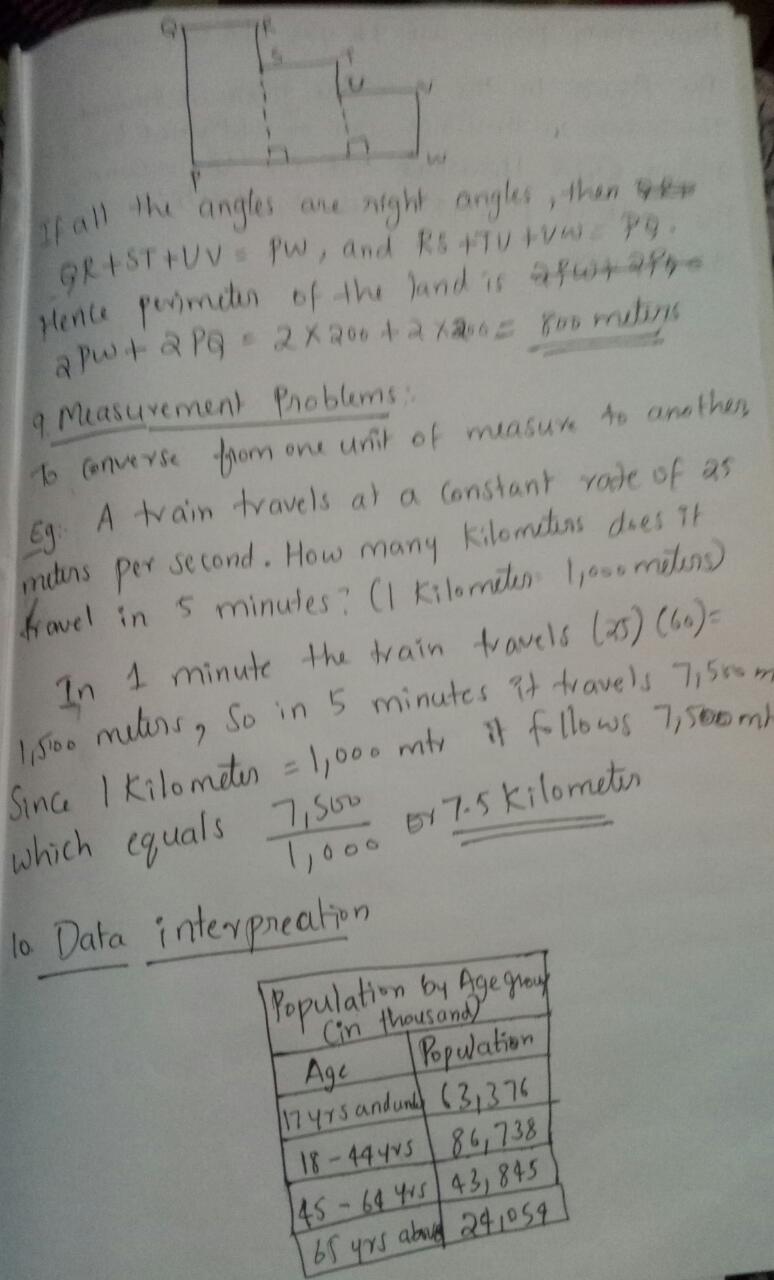 Q R
S T
U V
P W
If all the angles are right angles, then
QR+ST+UV = PW, and RS+TU+VW = PQ.
Hence perimeter of the land is 2PW+2PQ
2PW+2PQ = 2X200+2X200= 800 meters
9. Measurement Problems:
To Converse from one unit of measure to another
Eg:- A train travels at a constant rate of 25
meters per second. How many kilometers does it
travel in 5 minutes? (1 Kilometer= 1,000 meters)
In 1 minute the train travels (25) (60)=
1,500 meters, So in 5 minutes it travels 7,500 m
Since 1 Kilometer = 1,000 mtr it follows 7,500 mt
which equals 7,500/1,000 or 7.5 Kilometer
10. Data interpreation
Population by Age group
(in thousand)
Age Population
17 yrs and und 63,376
18-44 yrs 86,738
45-64 yrs 43,845
65 yrs above 24,054